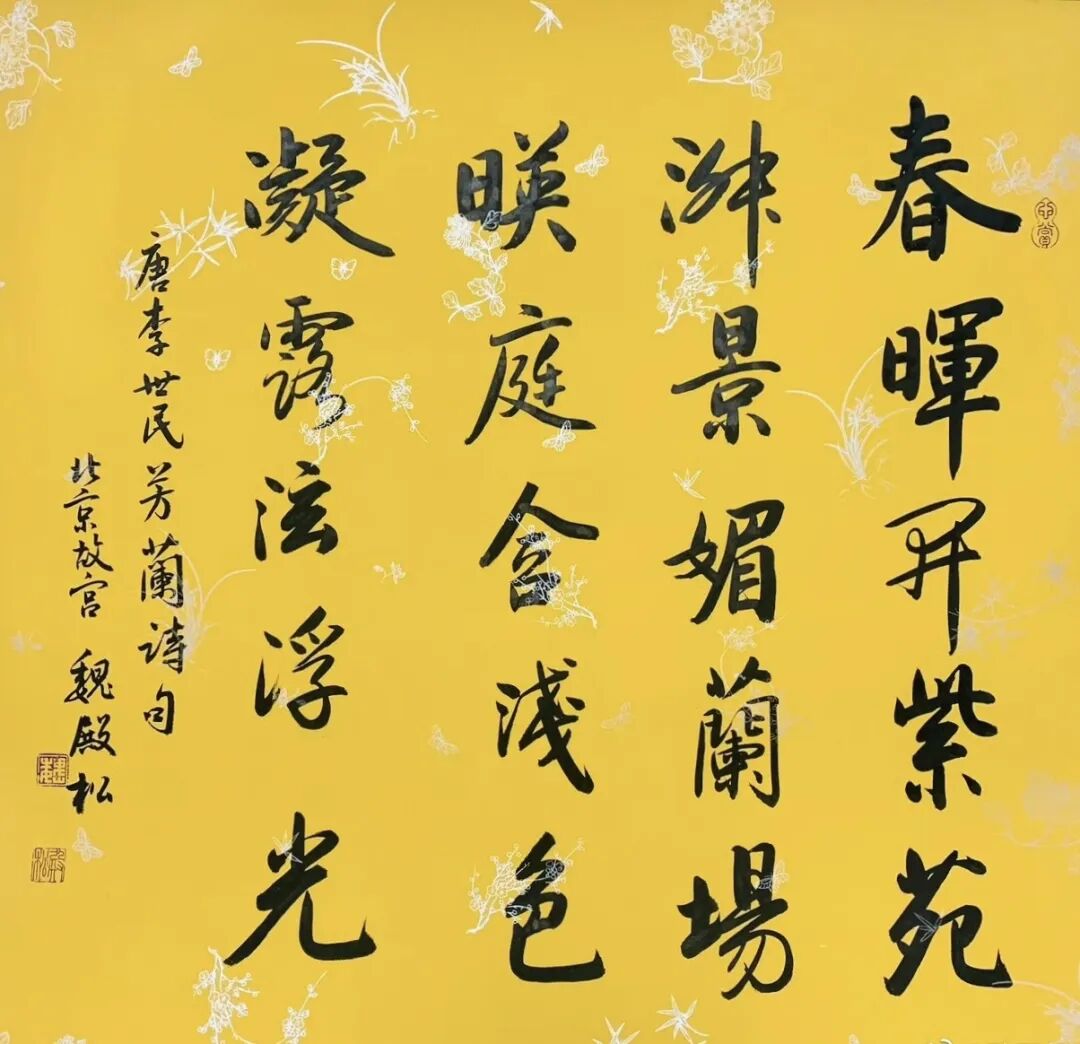 春暉開紫苑
淑景媚蘭場
暎庭含淺色
凝露泫浮光
唐李世民芳蘭詩句
北京故宮 魏殿松